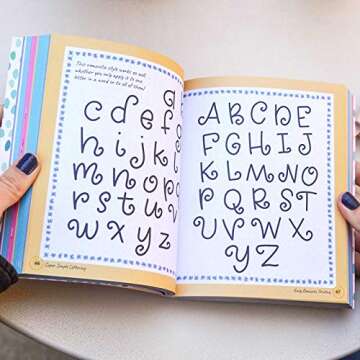 This romantic style works so well
whether you only apply it to one
letter in a word or to all of them!
d
c e f
h i j k l
m n o p
r s t u v
w x y z
66 Super Simple Lettering
A B C D E
F G H I J
K L M N O
P Q R S T
U V W X
Y Z
67